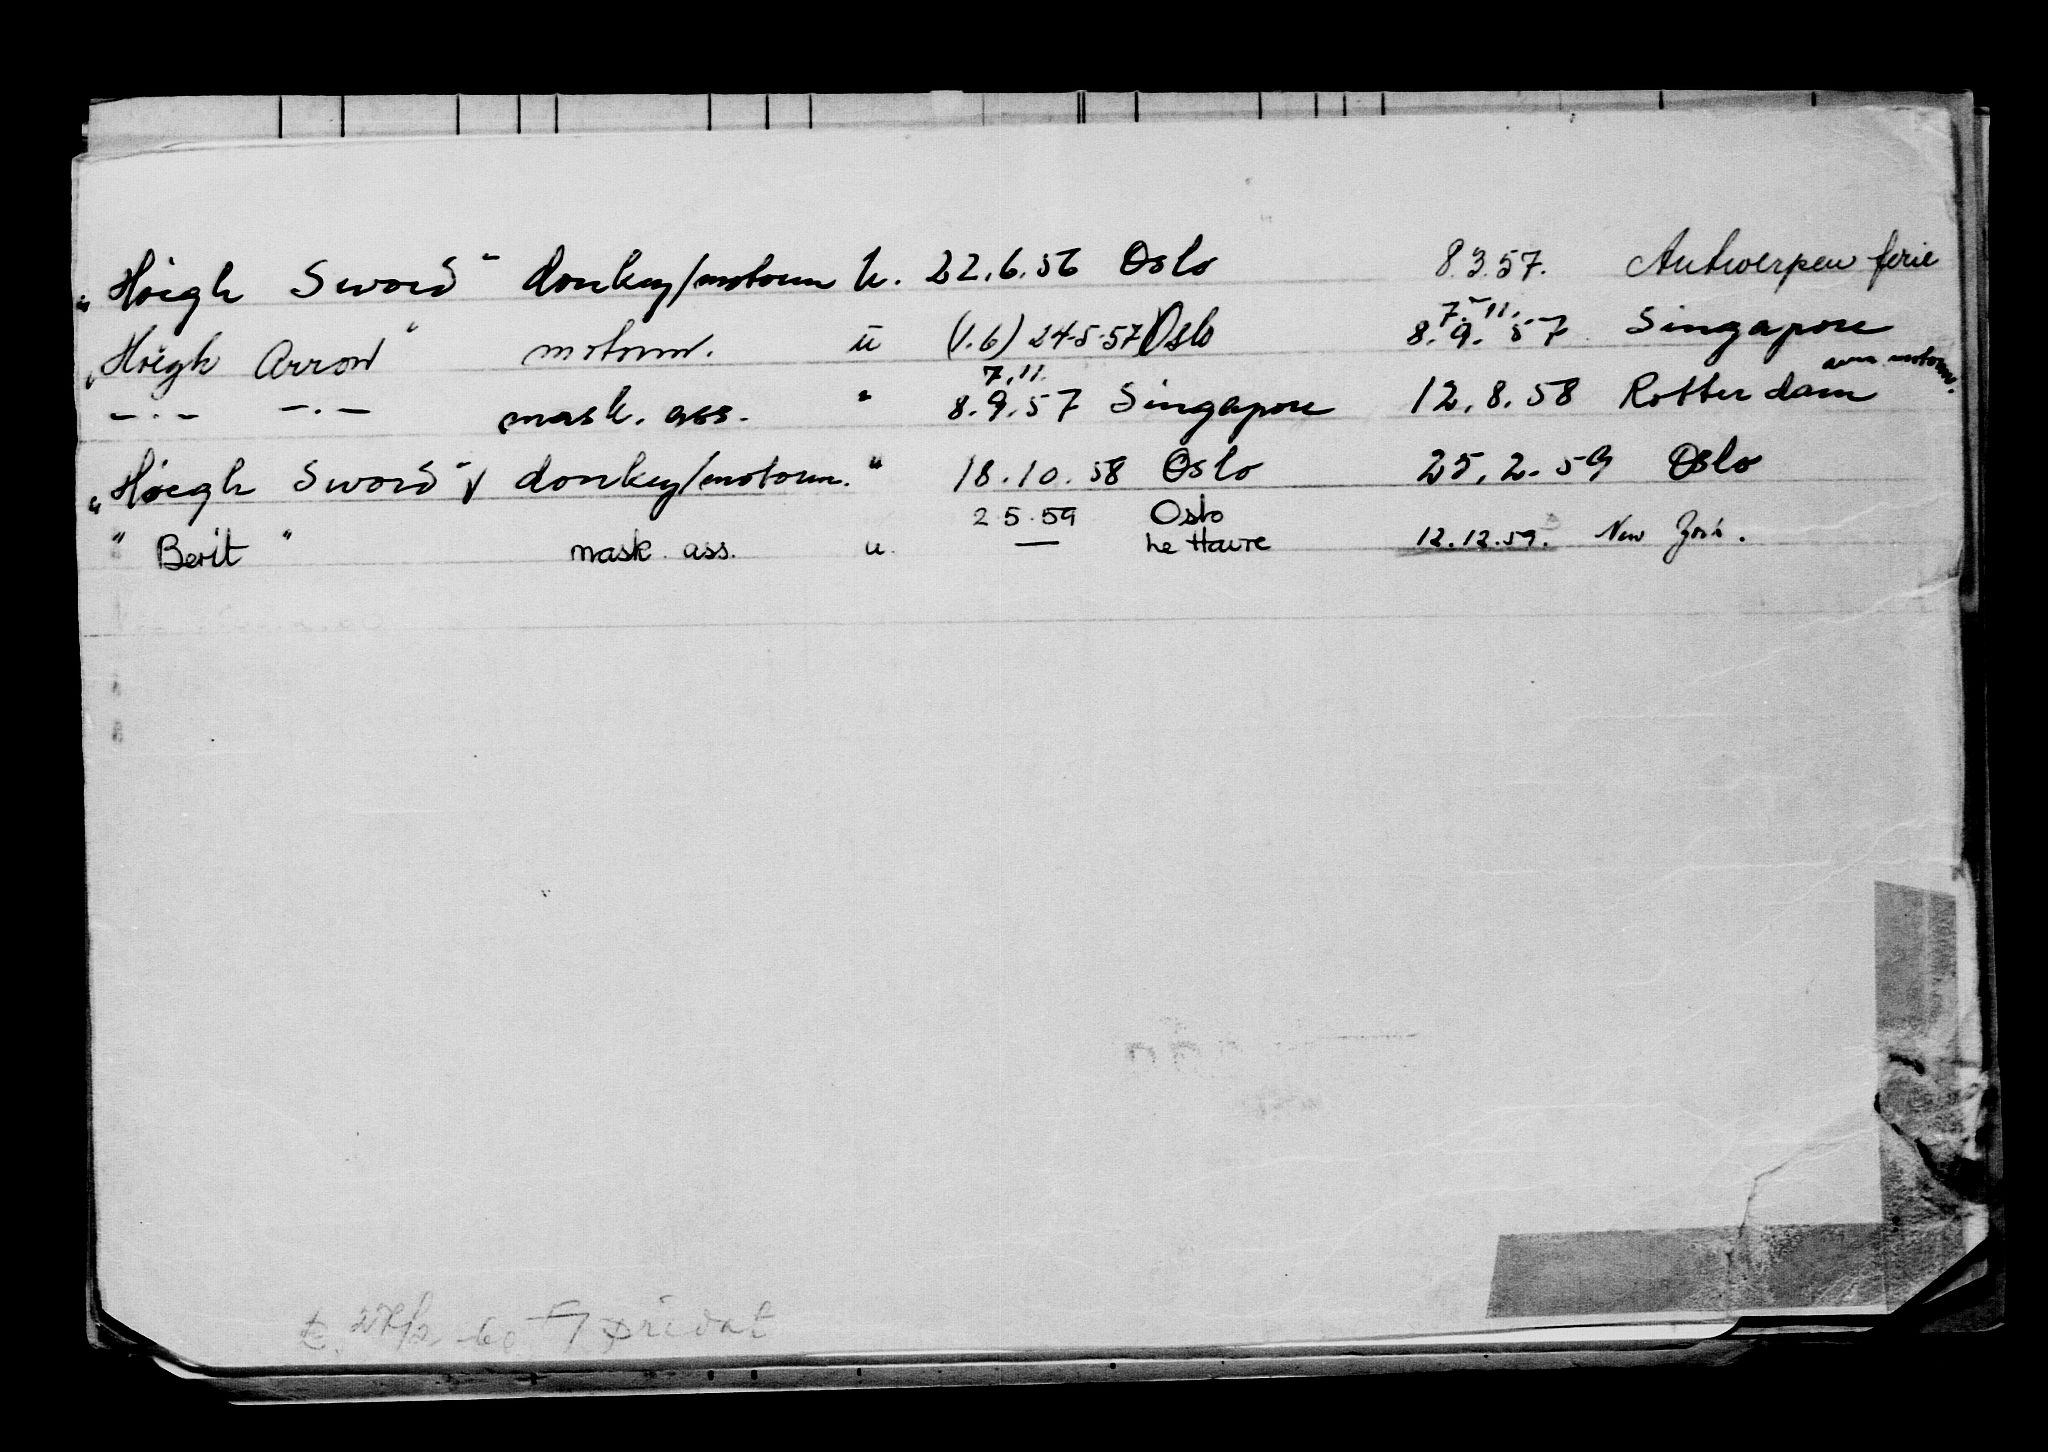 „Høegh Sword" donkey/motorm. u. 22.6.56 Oslo 8.3.57. Antwerpen ferie
„Høegh Arrow" motorm. u (1.6) 24-5-57 Oslo 7.-11. 8.9.57 Singapore
—.— —.— mask. ass. " 7.11. 8.9.57 Singapore 12.8.58 Rotterdam motorm.
„Høegh Sword" donkey/motorm. " 18.10.58 Oslo 25.2.59 Oslo
2.5.59 Oslo
" Berit " mask. ass. u. — Le Havre 12.12.59. New York.
60 privat